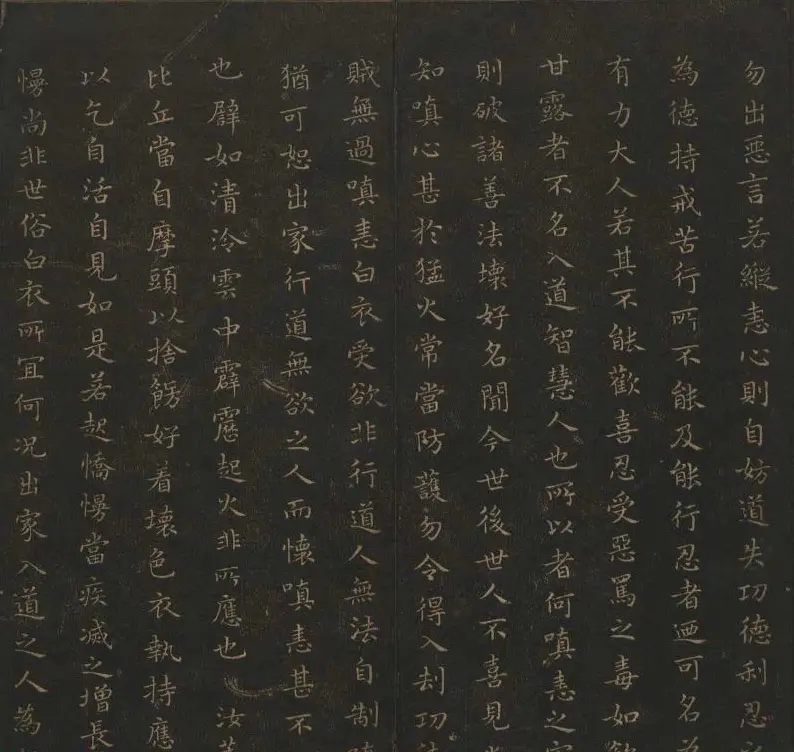 勿出惡言若縱恚心則自妨道失功德利忍
為德持戒苦行所不能及能行忍者迺可名
有力大人若其不能歡喜忍受惡罵之毒如
甘露者不名入道智慧人也所以者何嗔恚之
則破諸善法壞好名聞今世後世人不喜見
知嗔心甚於猛火常當防護勿令得入劫功
賊無過嗔恚白衣受欲非行道人無法自制
猶可恕出家行道無欲之人而懷嗔恚甚不
也譬如清泠雲中霹靂起火非所應也 汝
比丘當自摩頭以捨餝好着壞色衣執持應
以乞自活自見如是若起憍慢當疾滅之增長
慢尚非世俗白衣所宜何況出家入道之人為